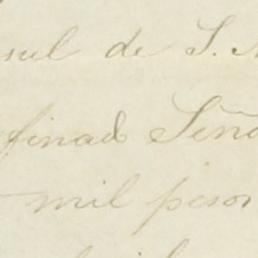 sul de S.
finad Seño
mil pesos